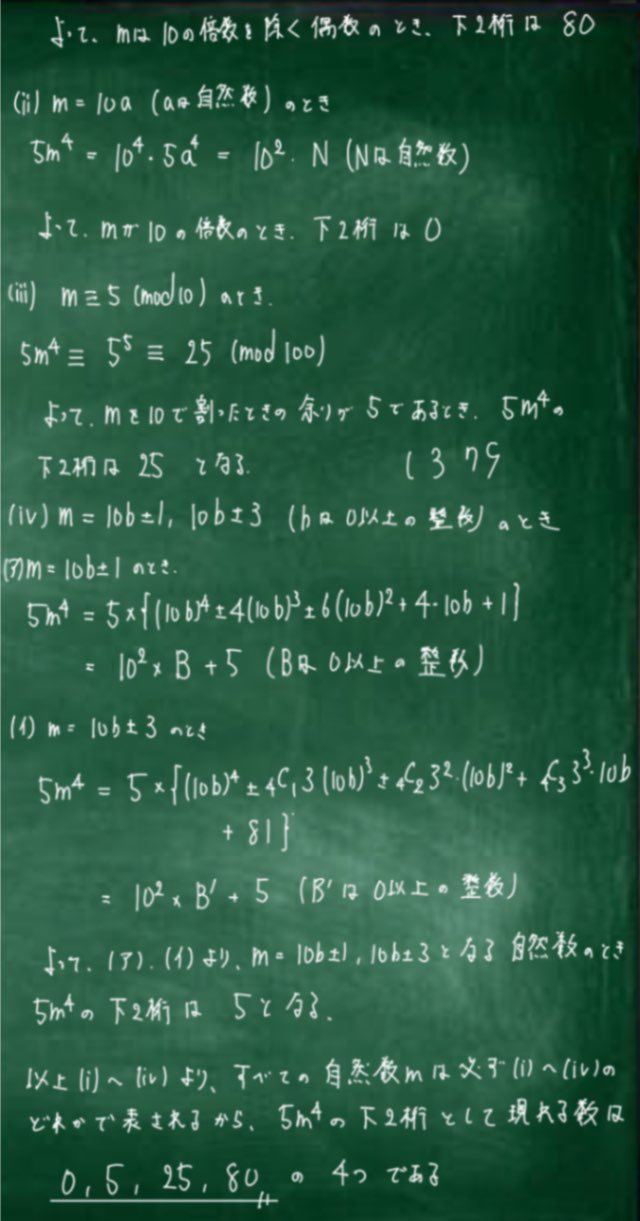 よって、mは10の倍数を除く偶数のとき、下2桁は 80
(ii) m = 10a (aは自然数) のとき
5m⁴ = 10⁴・5a⁴ = 10²・N (Nは自然数)
よって、mが10の倍数のとき、下2桁は 0
(iii) m≡5 (mod10) のとき、
5m⁴ ≡ 5⁵ ≡ 25 (mod100)
よって、mを10で割ったときの余りが5であるとき、5m⁴の
下2桁は 25 となる.
1 3 7 9
(iv) m = 10b±1, 10b±3 (bは0以上の整数) のとき
(ア) m = 10b±1 のとき.
5m⁴ = 5×{(10b)⁴±4(10b)³±6(10b)²+4・10b+1}
= 10²×B+5 (Bは0以上の整数)
(イ) m = 10b±3 のとき
5m⁴ = 5×{(10b)⁴±₄C₁3(10b)³±₄C₂3²・(10b)²+₄C₃3³・10b
+81}
= 10²×B'+5 (B'は0以上の整数)
よって、(ア),(イ)より、m=10b±1,10b±3となる自然数のとき
5m⁴の下2桁は 5となる.
以上(i)~(iv)より、すべての自然数mは必ず(i)~(iv)の
どれかで表されるから、5m⁴の下2桁として現れる数は
0, 5, 25, 80,, の 4つである